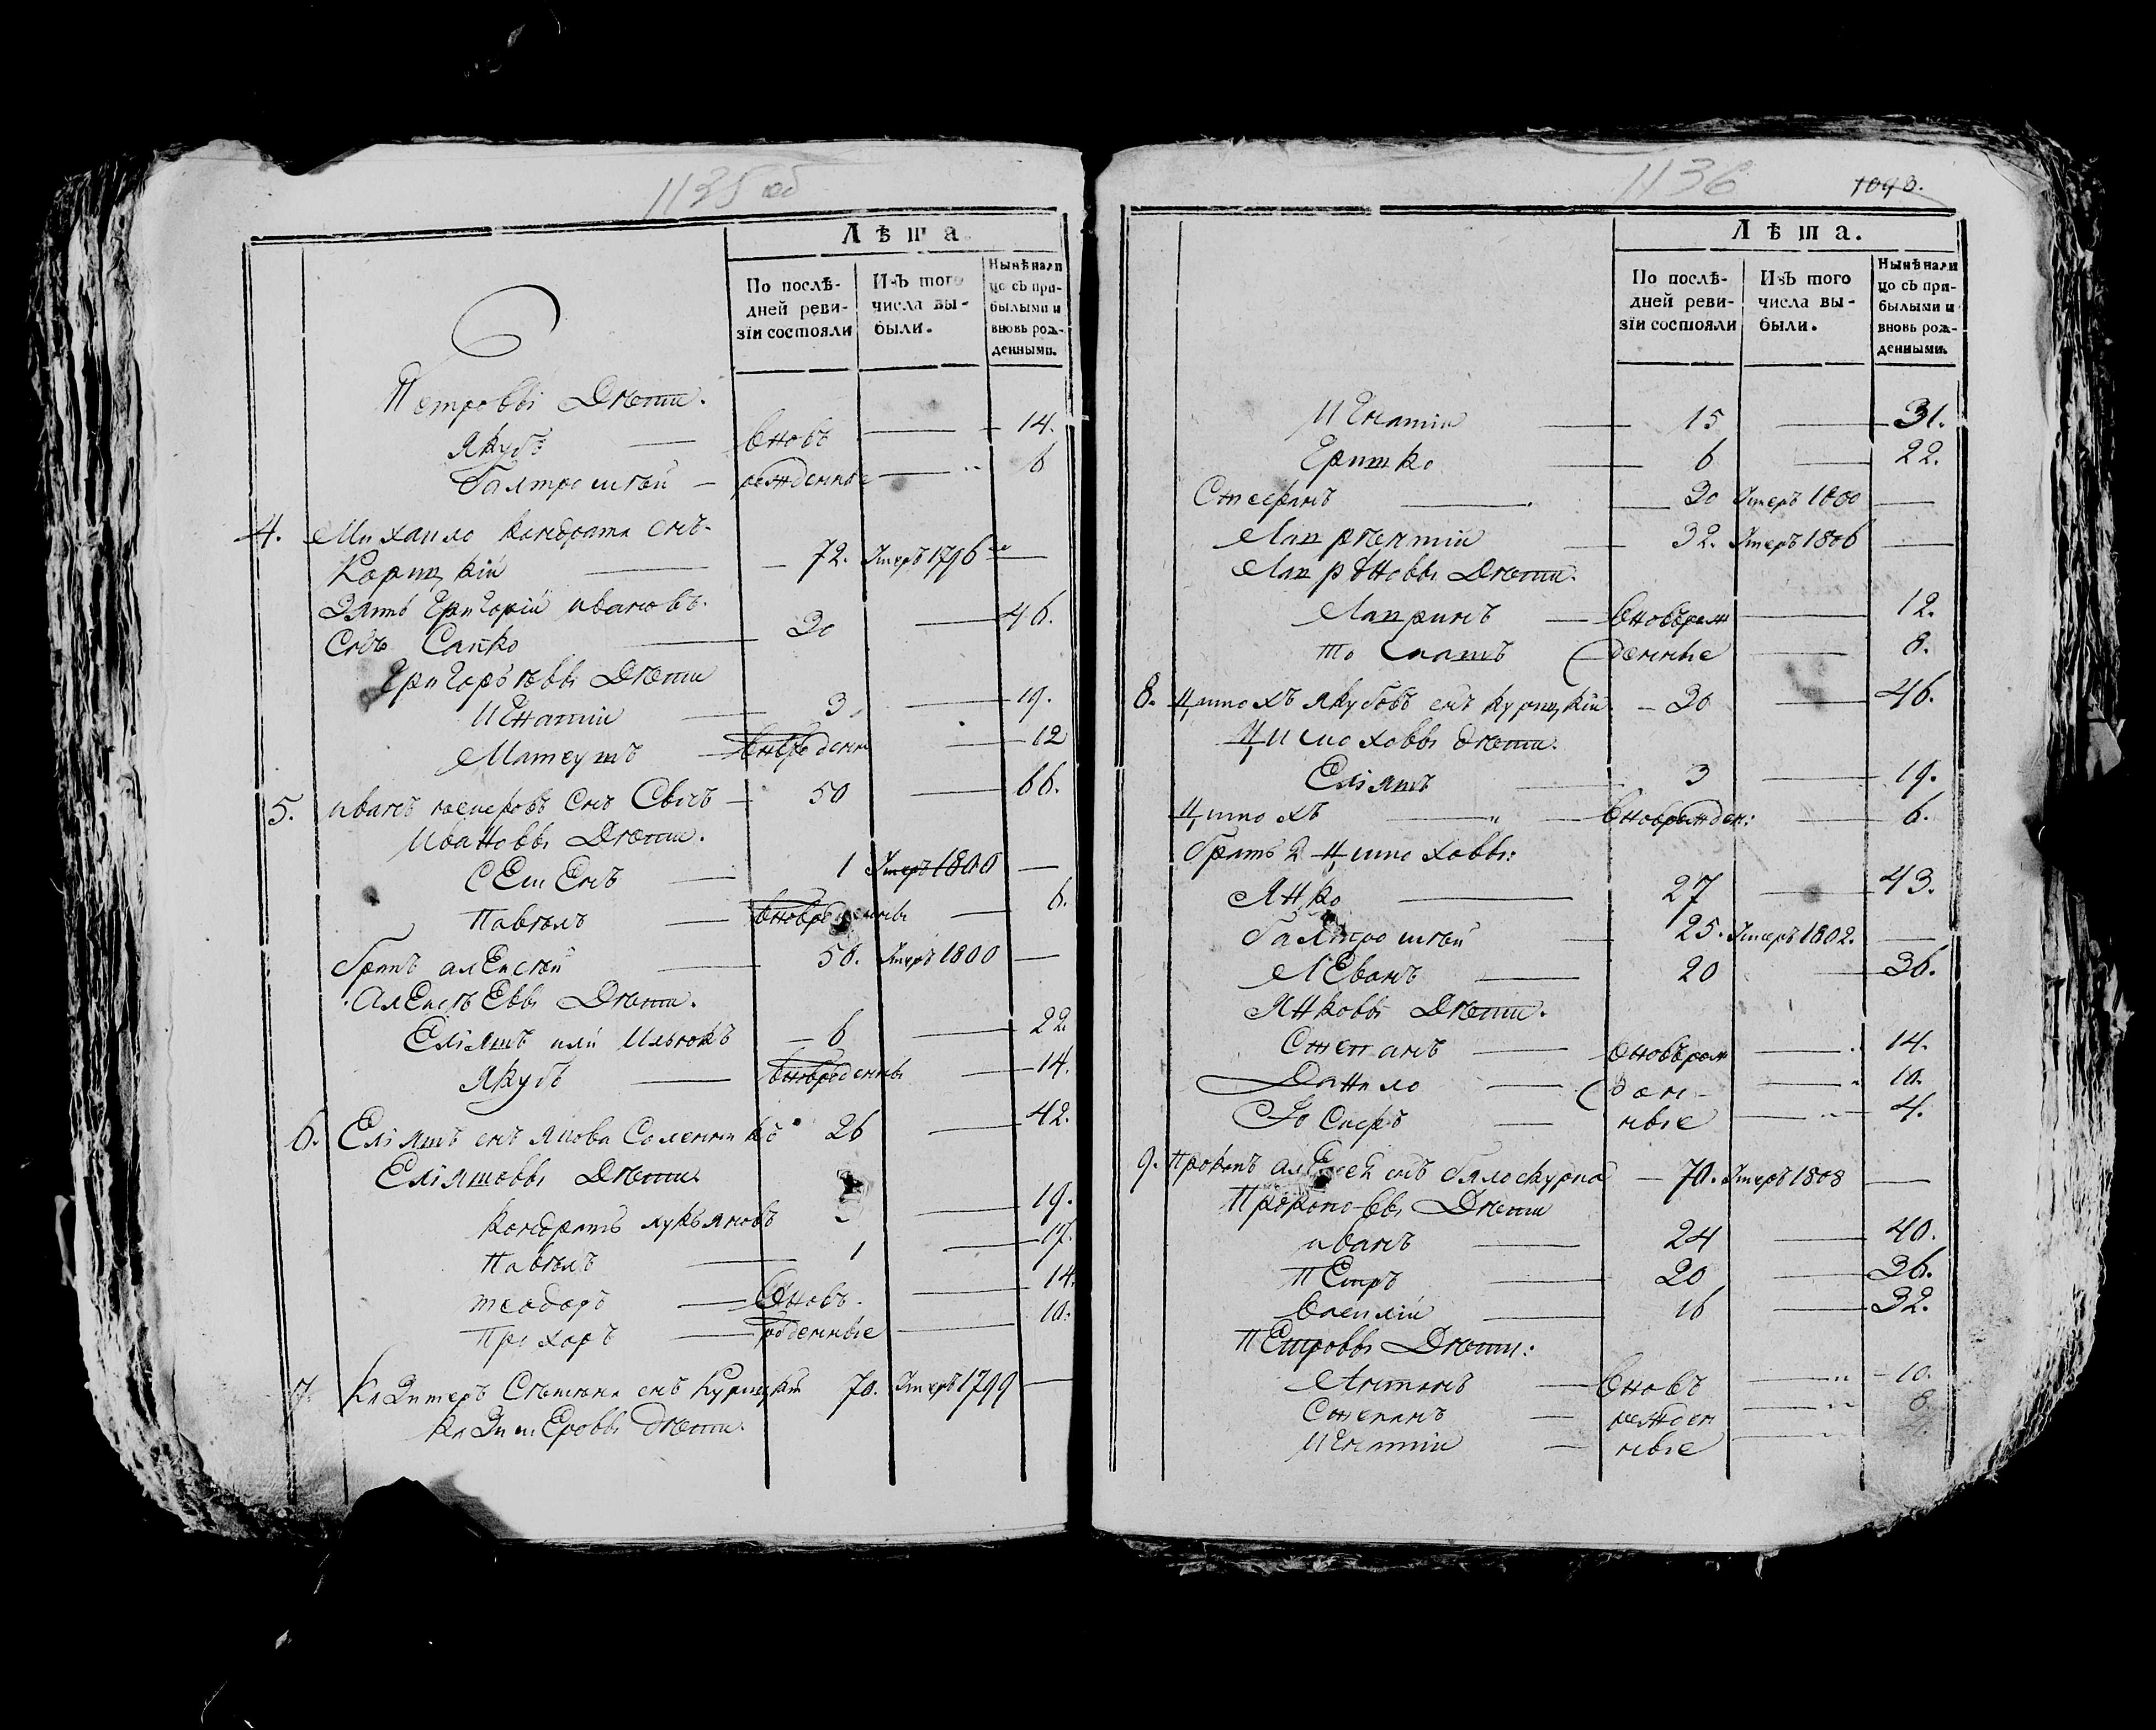 1135 об
Лѣта.
По послѣ-
дней реви-
зіи состояли
Изъ того
числа вы-
были.
Нынѣ нали
цо съ при-
былыми и
вновь рож-
денными.
Петровы Дѣти.
Якубъ — вновь — 14.
Балтромѣй — рожденные — 6
4. Михайло Кондрата снъ
Корицкій — 72. Умеръ 1796 —
Зять Григорій Ивановъ
Снъ Сапко — 30 — 46.
Григорьевы Дѣти
Игнатій — 3 — 19.
Матеушъ — 12
5. Иванъ снъ — 50 — 66.
Ивановы Дѣти.
Семенъ — 1 Умеръ 1800 —
Павелъ — 6.
братъ Алексѣй — 50. Умеръ 1800 —
Алексѣевы Дѣти.
Еліяшъ или Илькокъ — 6 — 22
Якубъ — 14.
6. Еліяшъ снъ 26 — 42.
Еліяшовы Дѣти
Кондратъ Лукьяновъ — 19.
Павелъ — 1 — 17.
Теодоръ — Вновь — 14.
Прохоръ — рожденные — 10.
7. Казимеръ снъ Курицкій 70. Умеръ 1799 —
Казимеровы дѣти.
1136
1093.
Лѣта.
По послѣ-
дней реви-
зіи состояли
Изъ того
числа вы-
были.
Нынѣ нали
цо съ при-
былыми и
вновь рож-
денными.
Игнатій — 15 — 31.
Гришко — 6 — 22.
Стефанъ — 30 Умеръ 1800 —
Лаврентій — 32. Умеръ 1806 —
Дѣти.
Лавринъ — вновь рож — 12.
денные — 8.
8. Цимохъ Якубовъ снъ Курицкій — 30 — 46.
Цимоховы дѣти.
Еліяшъ — 3 — 19.
Цимохъ — вноврожден: — 6.
братья Цимоховы:
Янко — 27 — 43.
Балтромѣй — 25. Умеръ 1802. —
Леванъ — 20 — 36.
Янковы Дѣти.
Степанъ — вновь рож — 14.
Данило — ден- — 10.
ные — 4.
9. Прокопъ снъ — 70. Умеръ 1808 —
Прокоповы Дѣти
Иванъ — 24 — 40.
Петръ — 20 — 36.
Василій — 16 — 32.
Петровы Дѣти:
Антонъ — Вновь — 10.
Степанъ — рожден — 8
Игнатій — ные —